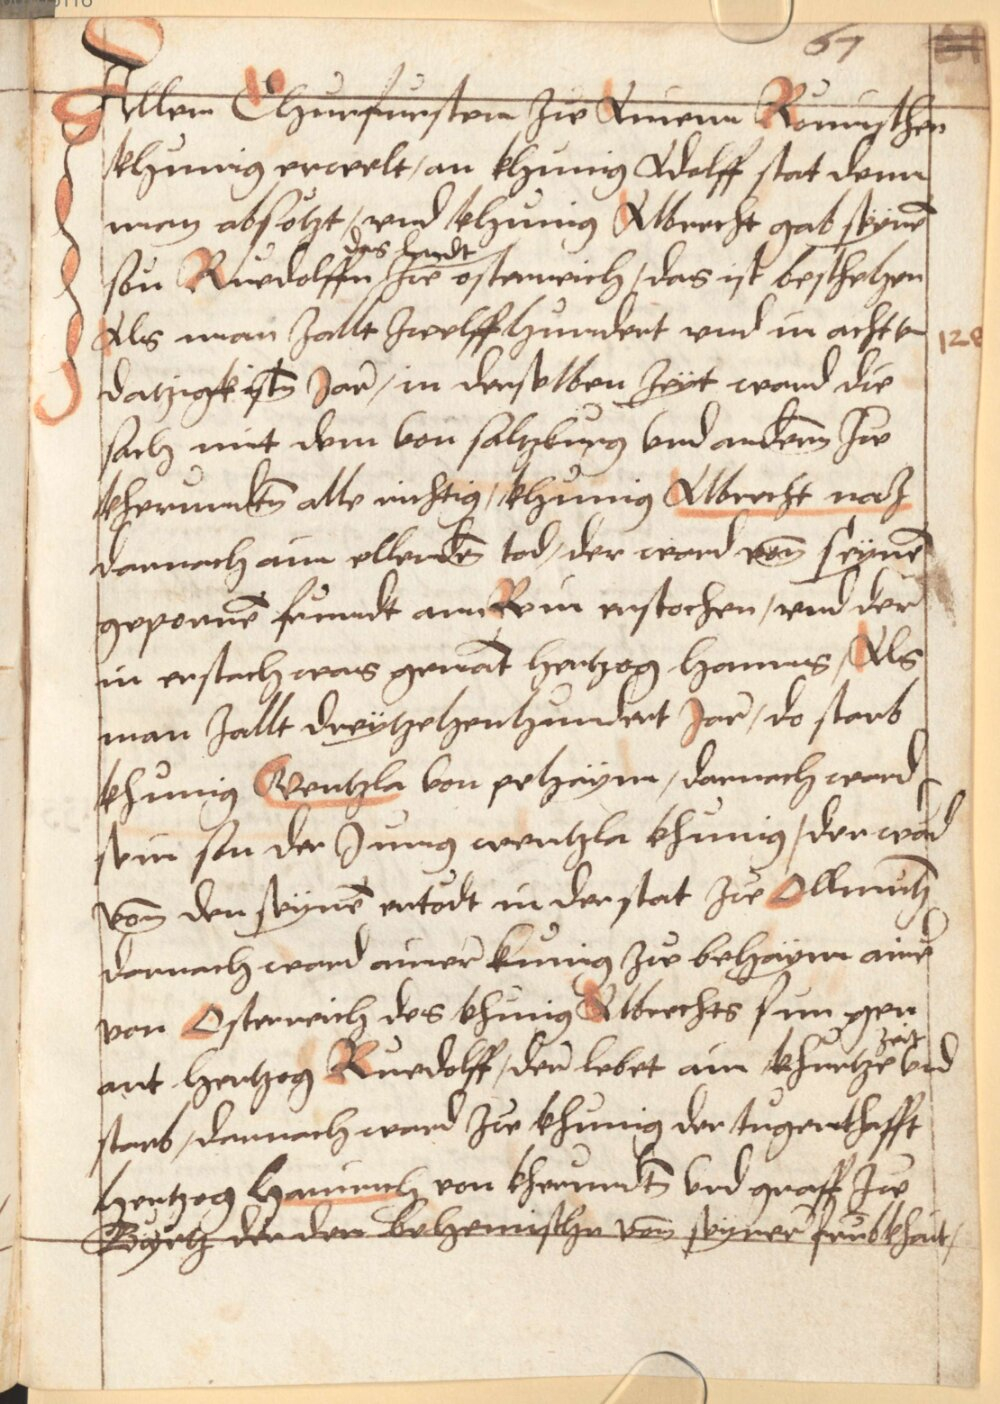 67
Allem Churfursten zue Ainem Romischen
khunig erwelt / an khunig Adolff stat denn
man absötzt / und khunig Albrecht gab seyne͂
son Ruedolffen das landt zue osterreich / das ist beschehen
Als man zallt zwelffhundert und in achten
datzigkisten Jar / in derselben zeyt ward die
sach mit dem von saltzburg und andern zue
khernndten alle richtig / khunig Albrecht naz
darnach ain ellenden tod / der ward von seyne͂
geporne͂ freundt am Rein erstochen / und der
in erstach was genāt hertzog hanns / Als
man zallt dreytzehenhundert Jar / do starb
khunig Wentzla von pehäym / darnach ward
sein son der Jung wentzla khunig / der wārd
von den seyne͂ ertödt in der stat zue Ollmutz
darnach ward ainer kunig zue behäym aine͂
von Osterreich des khunig Albrechts sun gen
ant hertzog Ruedolff / der lebet ain khurtze zeit und
starb / darnach ward zue khunig der tugenthafft
hertzog Hainrich von khernndtn und graff zue
Görtz der den behemische von seyner frubkhait /